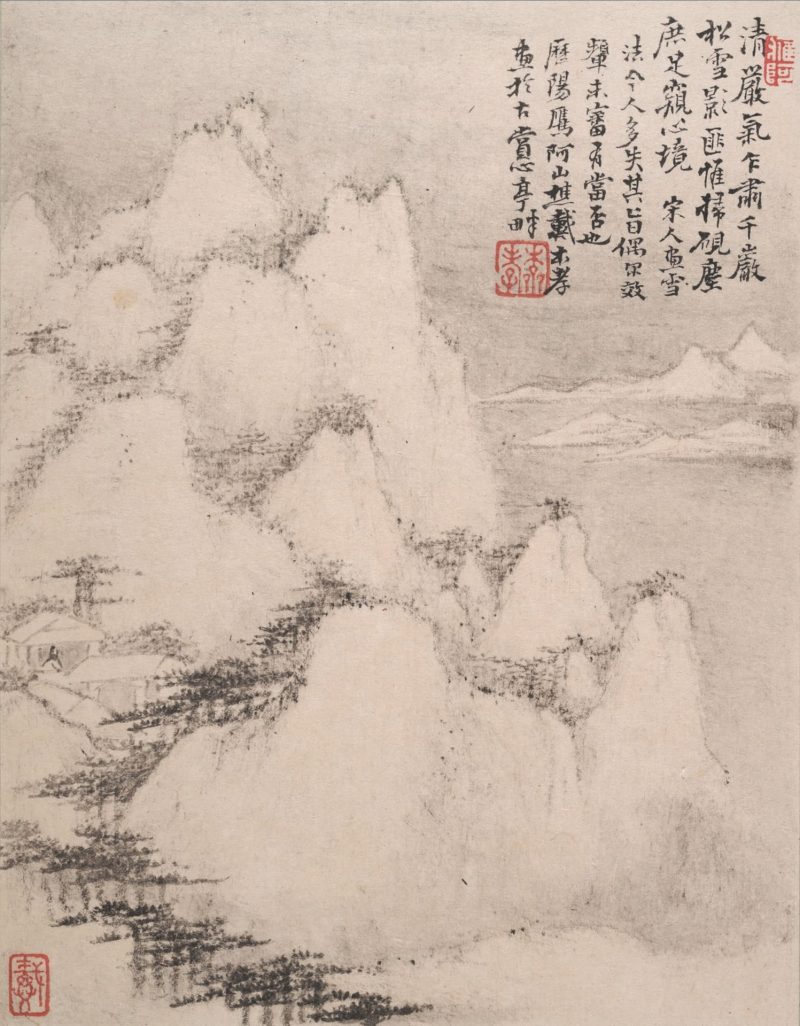 清嚴氣乍肅千巖
松雪影匪惟掃硯塵
庶足窺心境 宋人畫雪
法今人多失其旨偶尒效
顰未審有當否也
歷陽鷹阿山樵戴本孝
畫於古賞心亭畔
鷹阿
本孝